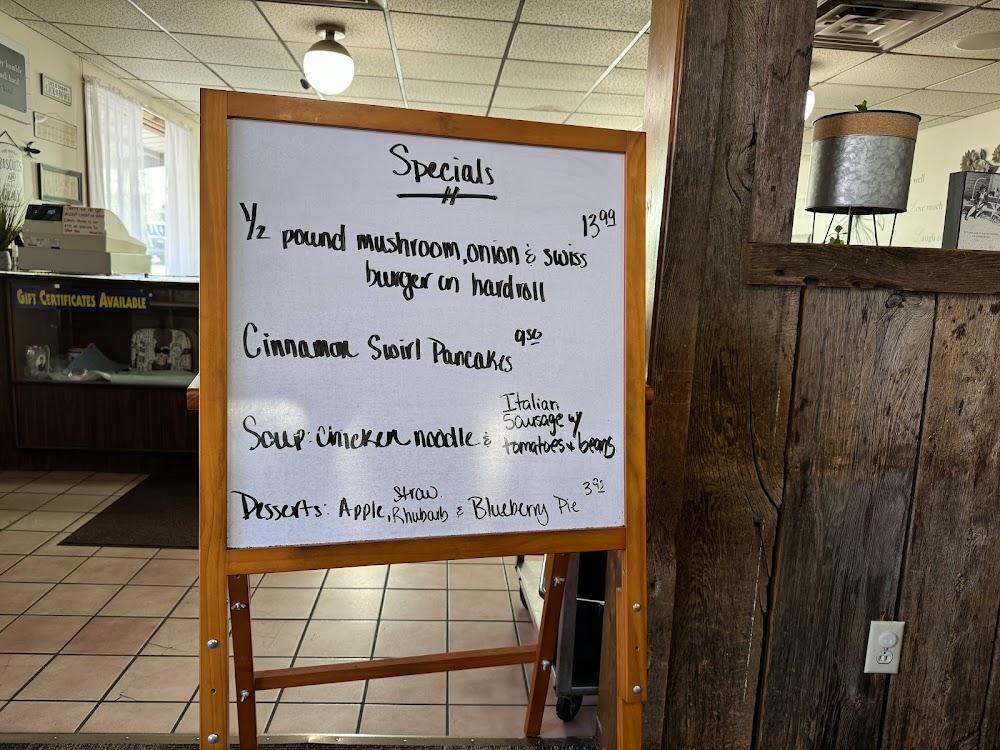 Specials
1/2 pound mushroom, onion & swiss 13.99
burger on hard roll
Cinnamon Swirl Pancakes 9.50
Soup: Chicken noodle & Italian
Sausage w/
tomatoes + beans
Desserts: Apple, Straw.
Rhubarb & Blueberry Pie
GIFT CERTIFICATES AVAILABLE
well
Love much